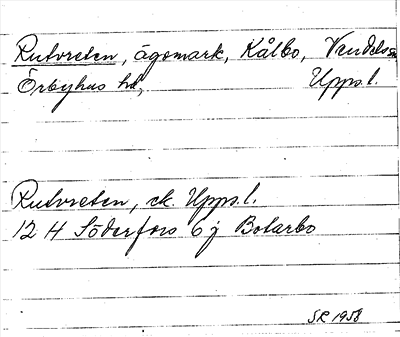 Rutvreten, ägomark, Kålbo, Vendels sn
Örbyhus hd, Upps. l.
Rutvreten, ek. Upps. l.
12 H Söderfors 6 j Botarbo
SR 1958